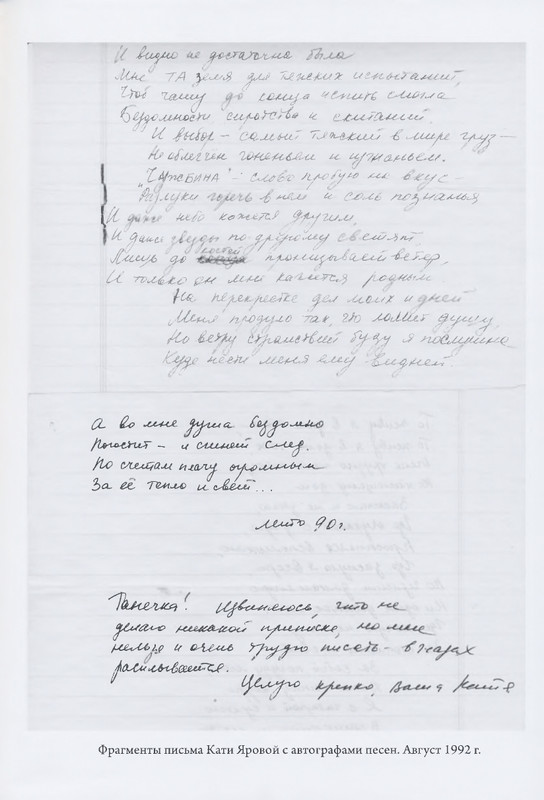 И видно не достаточна была
Мне ТА земля для тяжских испытаний,
Чтоб чашу до конца испить смогла
Бездомности сиротства и скитаний.
И выбор – самый тяжский в мире груз –
Не облегчен гоненьем и изгнаньем.
"ЧУЖБИНА": слово пробую на вкус –
Разлуки горечь в нем и соль познанья
И даже небо кажется другим,
И даже звезды по-другому светят
Лишь до костей пронизывает ветер,
И только он мне кажется родным
На перекрестке дел моих и дней
Меня продуло так, что ломит душу,
Но ветру странствий буду я послушна
Куда нести меня ему видней.
А во мне душа бездомно
Погостит – и сгинет след.
По счетам плачу огромным
За её тепло и свет...
лето 90 г.
Танечка! Извиняюсь, что не
делаю никакой приписки, но мне
нельзя и очень трудно писать – в глазах
расплывается.
Целую крепко, Ваша Катя
Фрагменты письма Кати Яровой с автографами песен. Август 1992 г.